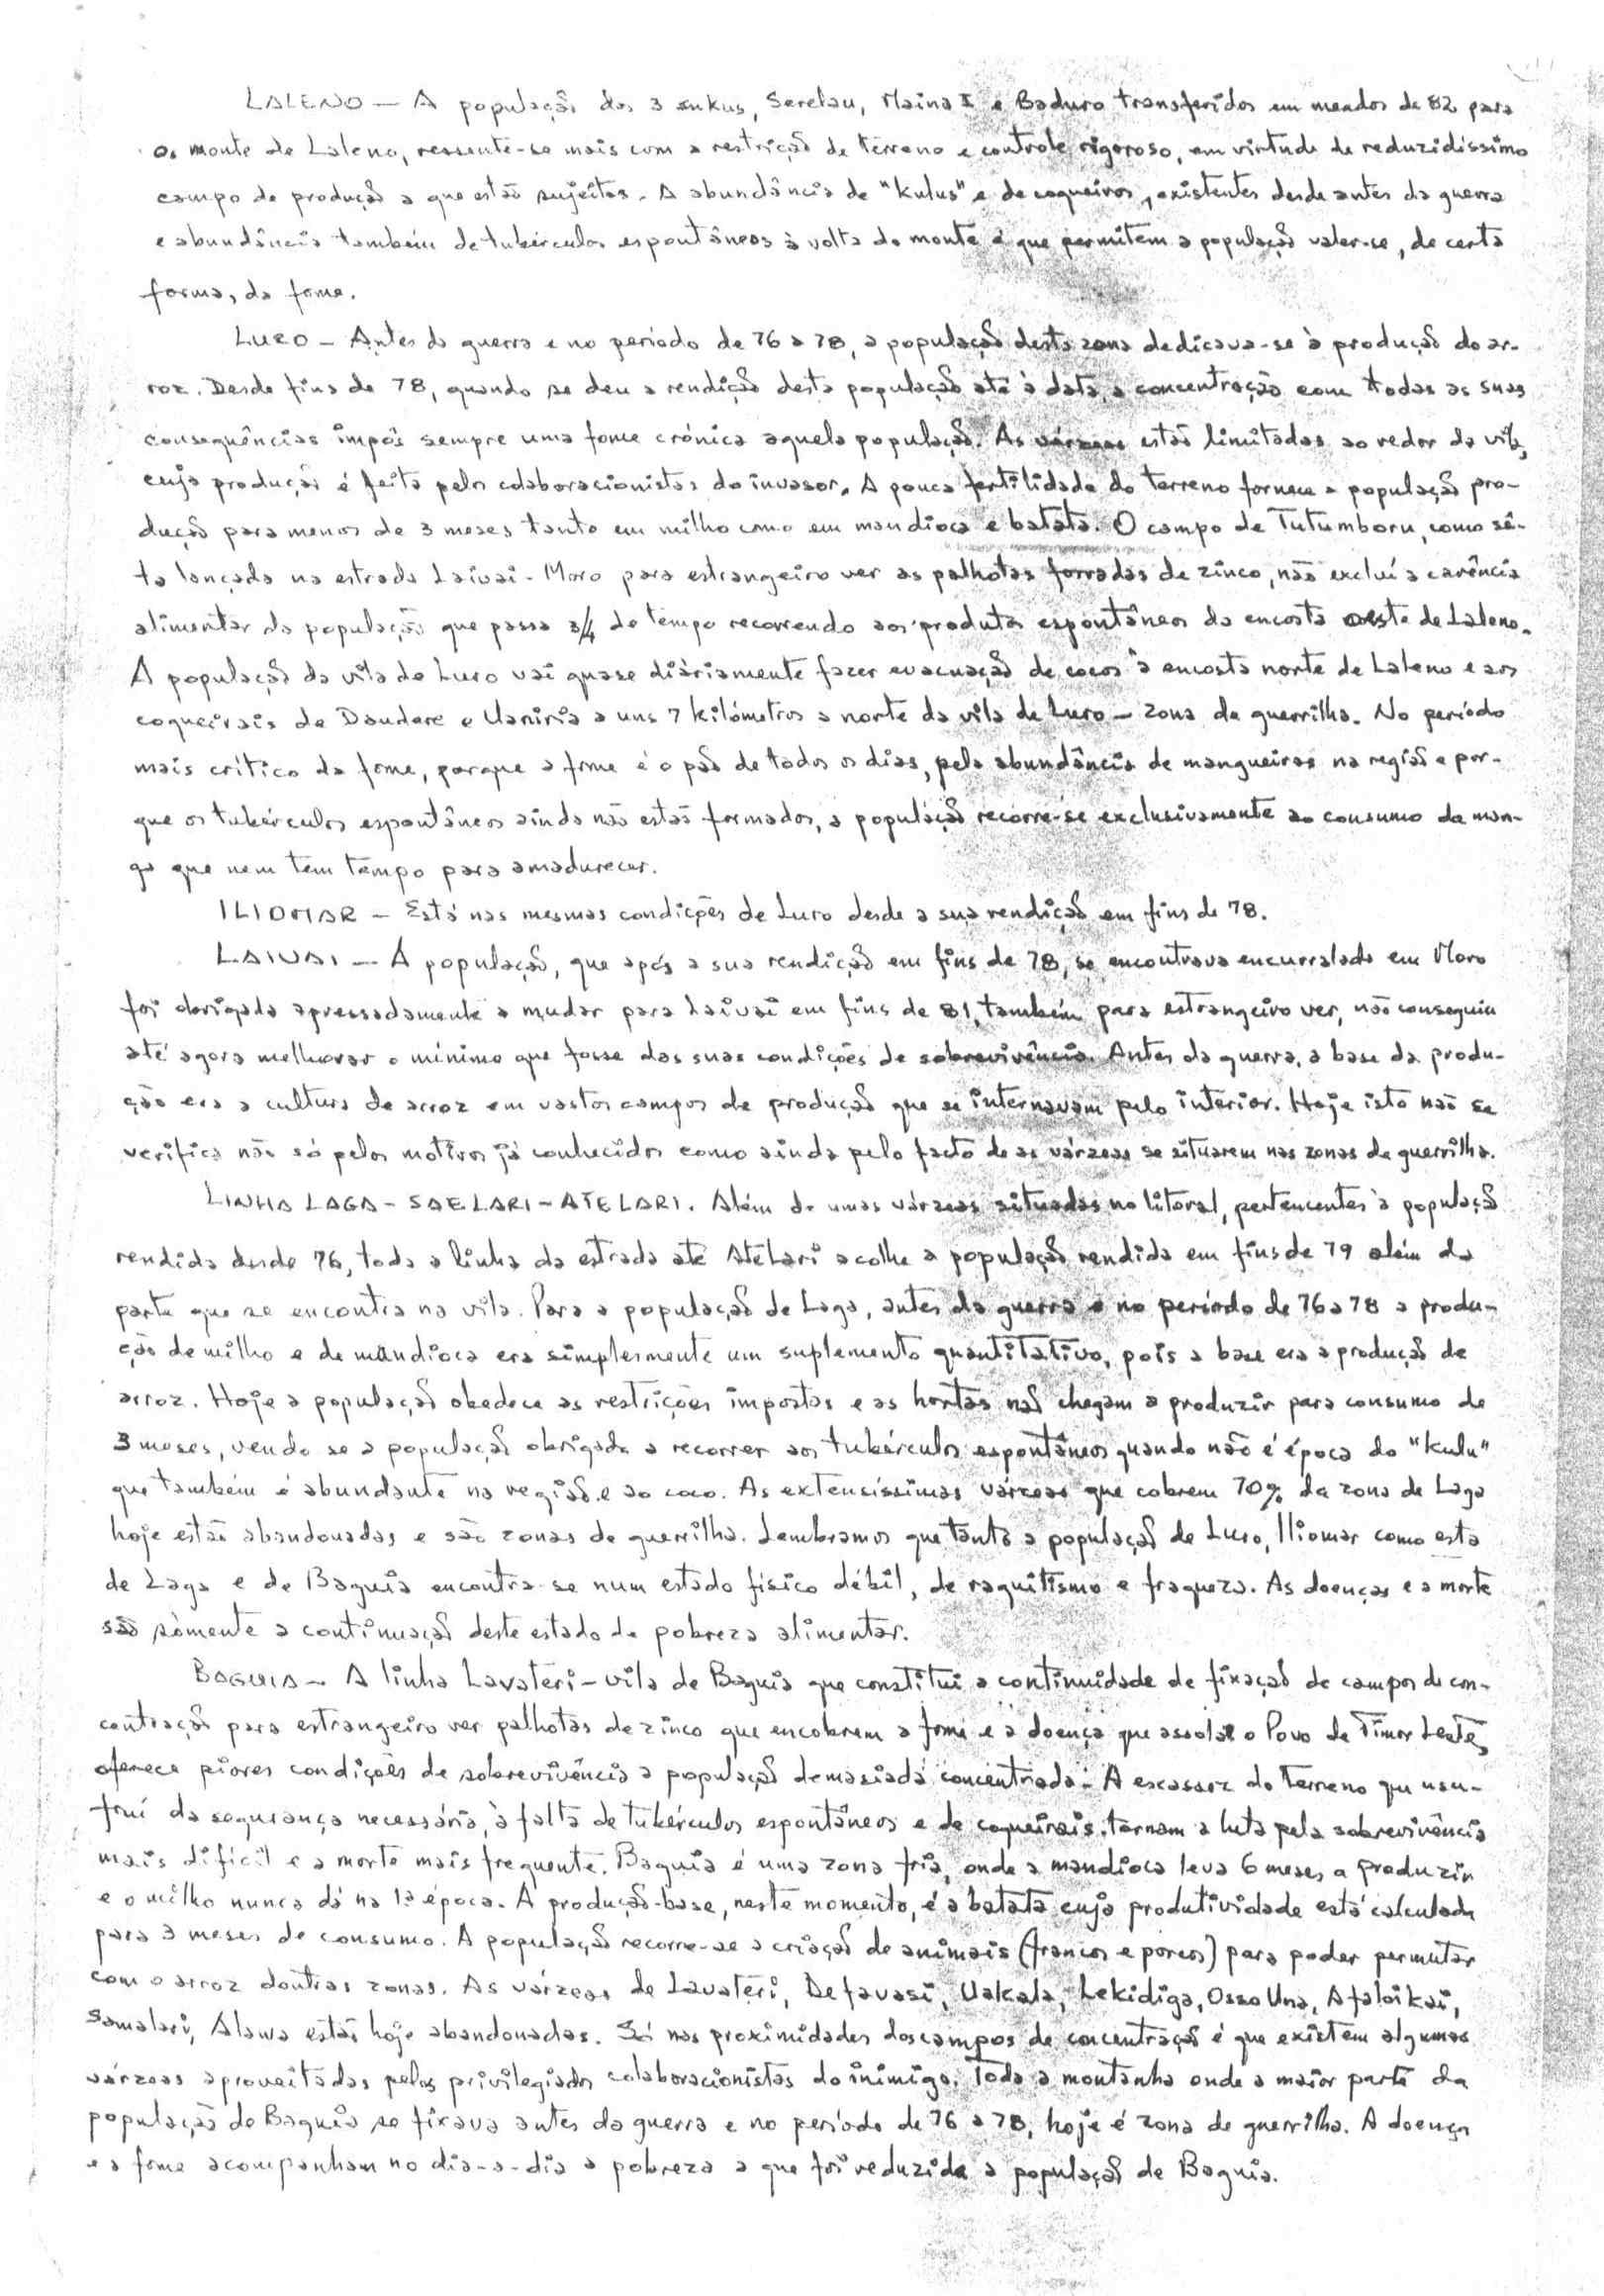 LALENO — A população dos 3 sukus, Serelau, Maina I e Baduro transferidos em meados de 82 para
o monte de Laleno, ressente-se mais com a restrição de terreno e controle rigoroso, em virtude de reduzidíssimo
campo de produção a que estão sujeitos. A abundância de "Kulus" e de coqueiros, existentes desde antes da guerra
e abundância também de tubérculos espontâneos à volta do monte é que permitem a população valer-se, de certa
forma, da fome.
LURO — Antes da guerra e no período de 76 a 78, a população desta zona dedicava-se à produção do ar-
roz. Desde fins de 78, quando se deu a rendição desta população até à data, a concentração com todas as suas
consequências impôs sempre uma fome crónica aquela população. As várzeas estão limitadas ao redor da vila,
cuja produção é feita pelos colaboracionistas do invasor. A pouca fertilidade do terreno fornece a população pro-
dução para menos de 3 meses tanto em milho como em mandioca e batata. O campo de Tutumboru, como sê-
ta lançada na estrada Laivai-Moro para estrangeiro ver as palhotas forradas de zinco, não exclui a carência
alimentar da população que passa 3/4 do tempo recorrendo aos produtos espontâneos da encosta oeste de Laleno.
A população da vila de Luro vai quase diáriamente fazer evacuação de cocos à encosta norte de Laleno e aos
coqueirais de Daudere e Uaniria a uns 7 kilómetros a norte da vila de Luro — zona de guerrilha. No período
mais crítico da fome, porque a fome é o pão de todos os dias, pela abundância de mangueiras na região e por-
que os tubérculos espontâneos ainda não estão formados, a população recorre-se exclusivamente ao consumo da man-
ga que nem tem tempo para amadurecer.
ILIOMAR — Está nas mesmas condicções de Luro desde a sua rendição em fins de 78.
LAIVAI — A população, que após a sua rendição em fins de 78, se encontrava encurralada em Moro
foi obrigada apressadamente a mudar para Laivai em fins de 81, também para estrangeiro ver, não conseguiu
até agora melhorar o mínimo que fosse das suas condições de sobrevivência. Antes da guerra, a base da produ-
ção era a cultura de arroz em vastos campos de produção que se internavam pelo interior. Hoje isto não se
verifica não só pelos motivos já conhecidos como ainda pelo facto de as várzeas se situarem nas zonas de guerrilha.
LINHA LAGA - SAELARI - ATELARI. Além de umas várzeas situadas no litoral, pertencentes à população
rendida desde 76, toda a linha da estrada até Atelari acolhe a população rendida em fins de 79 além da
parte que se encontra na vila. Para a população de Laga, antes da guerra e no período de 76 a 78 a produ-
ção de milho e de mandioca era simplesmente um suplemento quantitativo, pois a base era a produção de
arroz. Hoje a população obedece as restrições impostas e as hortas não chegam a produzir para consumo de
3 meses, vendo se a população obrigada a recorrer aos tubérculos espontâneos quando não é época do "kulu"
que também é abundante na região e ao coco. As extensíssimas várzeas que cobrem 70% da zona de Laga
hoje estão abandonadas e são zonas de guerrilha. Lembramos que tanto a população de Luro, Iliomar como esta
de Laga e de Baguia encontra-se num estado físico débil, de raquitismo e fraqueza. As doenças e a morte
são sòmente a continuação deste estado de pobreza alimentar.
BAGUIA — A linha Lavateri-vila de Baguia que constitui a continuidade de fixação de campos de con-
centração para estrangeiro ver palhotas de zinco que encobrem a fome e a doença que assolae o Povo de Timor Leste,
oferece piores condições de sobrevivência a população demasiada concentrada. A escassez do terreno que usu-
frui da segurança necessária, à falta de tubérculos espontâneos e de coqueirais, tornam a luta pela sobrevivência
mais difícil e a morte mais frequente. Baguia é uma zona fria, onde a mandioca leva 6 meses a produzir
e o milho nunca dá na 1ª época. A produção-base, neste momento, é a batata cuja produtividade está calculada
para 3 meses de consumo. A população recorre-se a criação de animais (francos e porcos) para poder permutar
com o arroz doutras zonas. As várzeas de Lavateri, Defavasi, Uakala, Lekidiga, Osso Una, Afaloikai,
Samalari, Alawa estão hoje abandonadas. Só nas proximidades dos campos de concentração é que existem algumas
várzeas aproveitadas pelos privilegiados colaboracionistas do inimigo. Toda a montanha onde a maior parte da
população de Baguia se fixava antes da guerra e no período de 76 a 78, hoje é zona de guerrilha. A doença
e a fome acompanham no dia-a-dia a pobreza a que foi reduzida a população de Baguia.